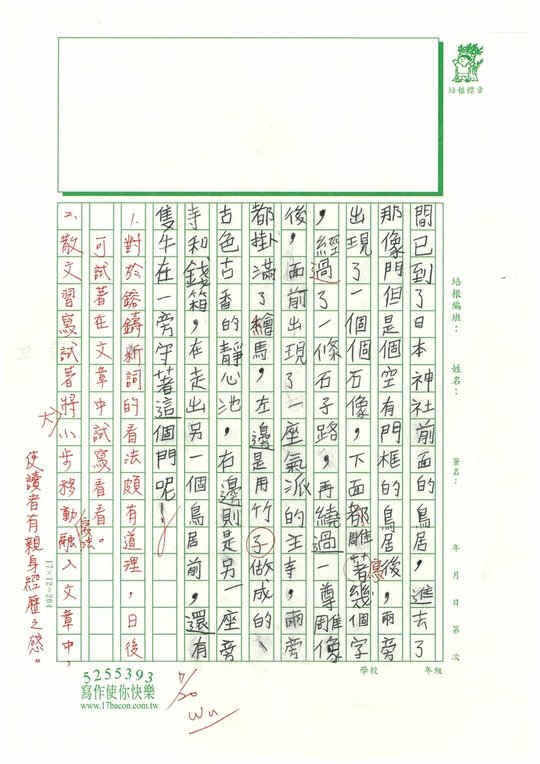 培根標章
培根編班：
姓名：
筆名：
年 月 日 第 次
間已到了日本神社前面的鳥居，進去了
那像門但是個空有門框的鳥居後，兩旁
出現了一個個石像，下面都雕著幾個字
寫
，經過了一條石子路，再繞過一尊雕像
後，面前出現了一座氣派的主寺，兩旁
都掛滿了繪馬，左邊是用竹子做成的、
古色古香的靜心池，右邊則是另一座旁
寺和錢箱，在走出另一個鳥居前，還有
隻牛在一旁守著這個門呢！
1.對於鎔鑄新詞的看法頗有道理，日後
可試著在文章中試寫看看。
2.散文習寫試著將小步移動融入文章中，
大
寫法
使讀者有親身經歷之感。
17×12=204
學校 年級
5255393
寫作使你快樂
www.17bacon.com.tw
7/30
Wu